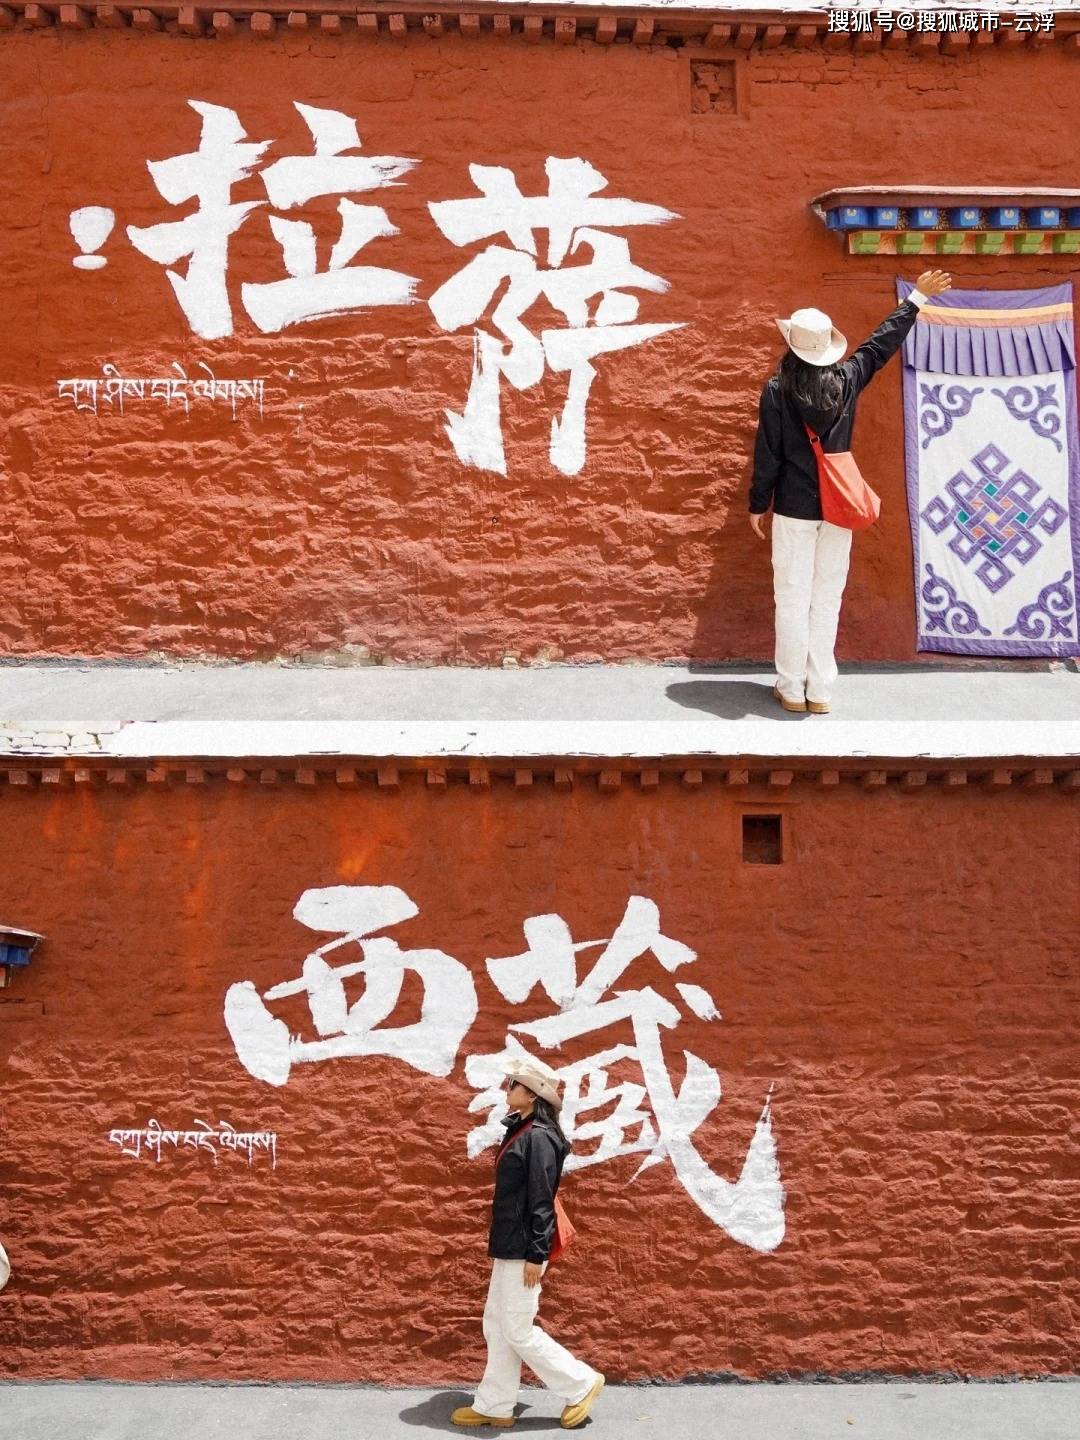 搜狐号@搜狐城市-云浮
拉萨
བཀྲ་ཤིས་བདེ་ལེགས།
西藏
བཀྲ་ཤིས་བདེ་ལེགས།